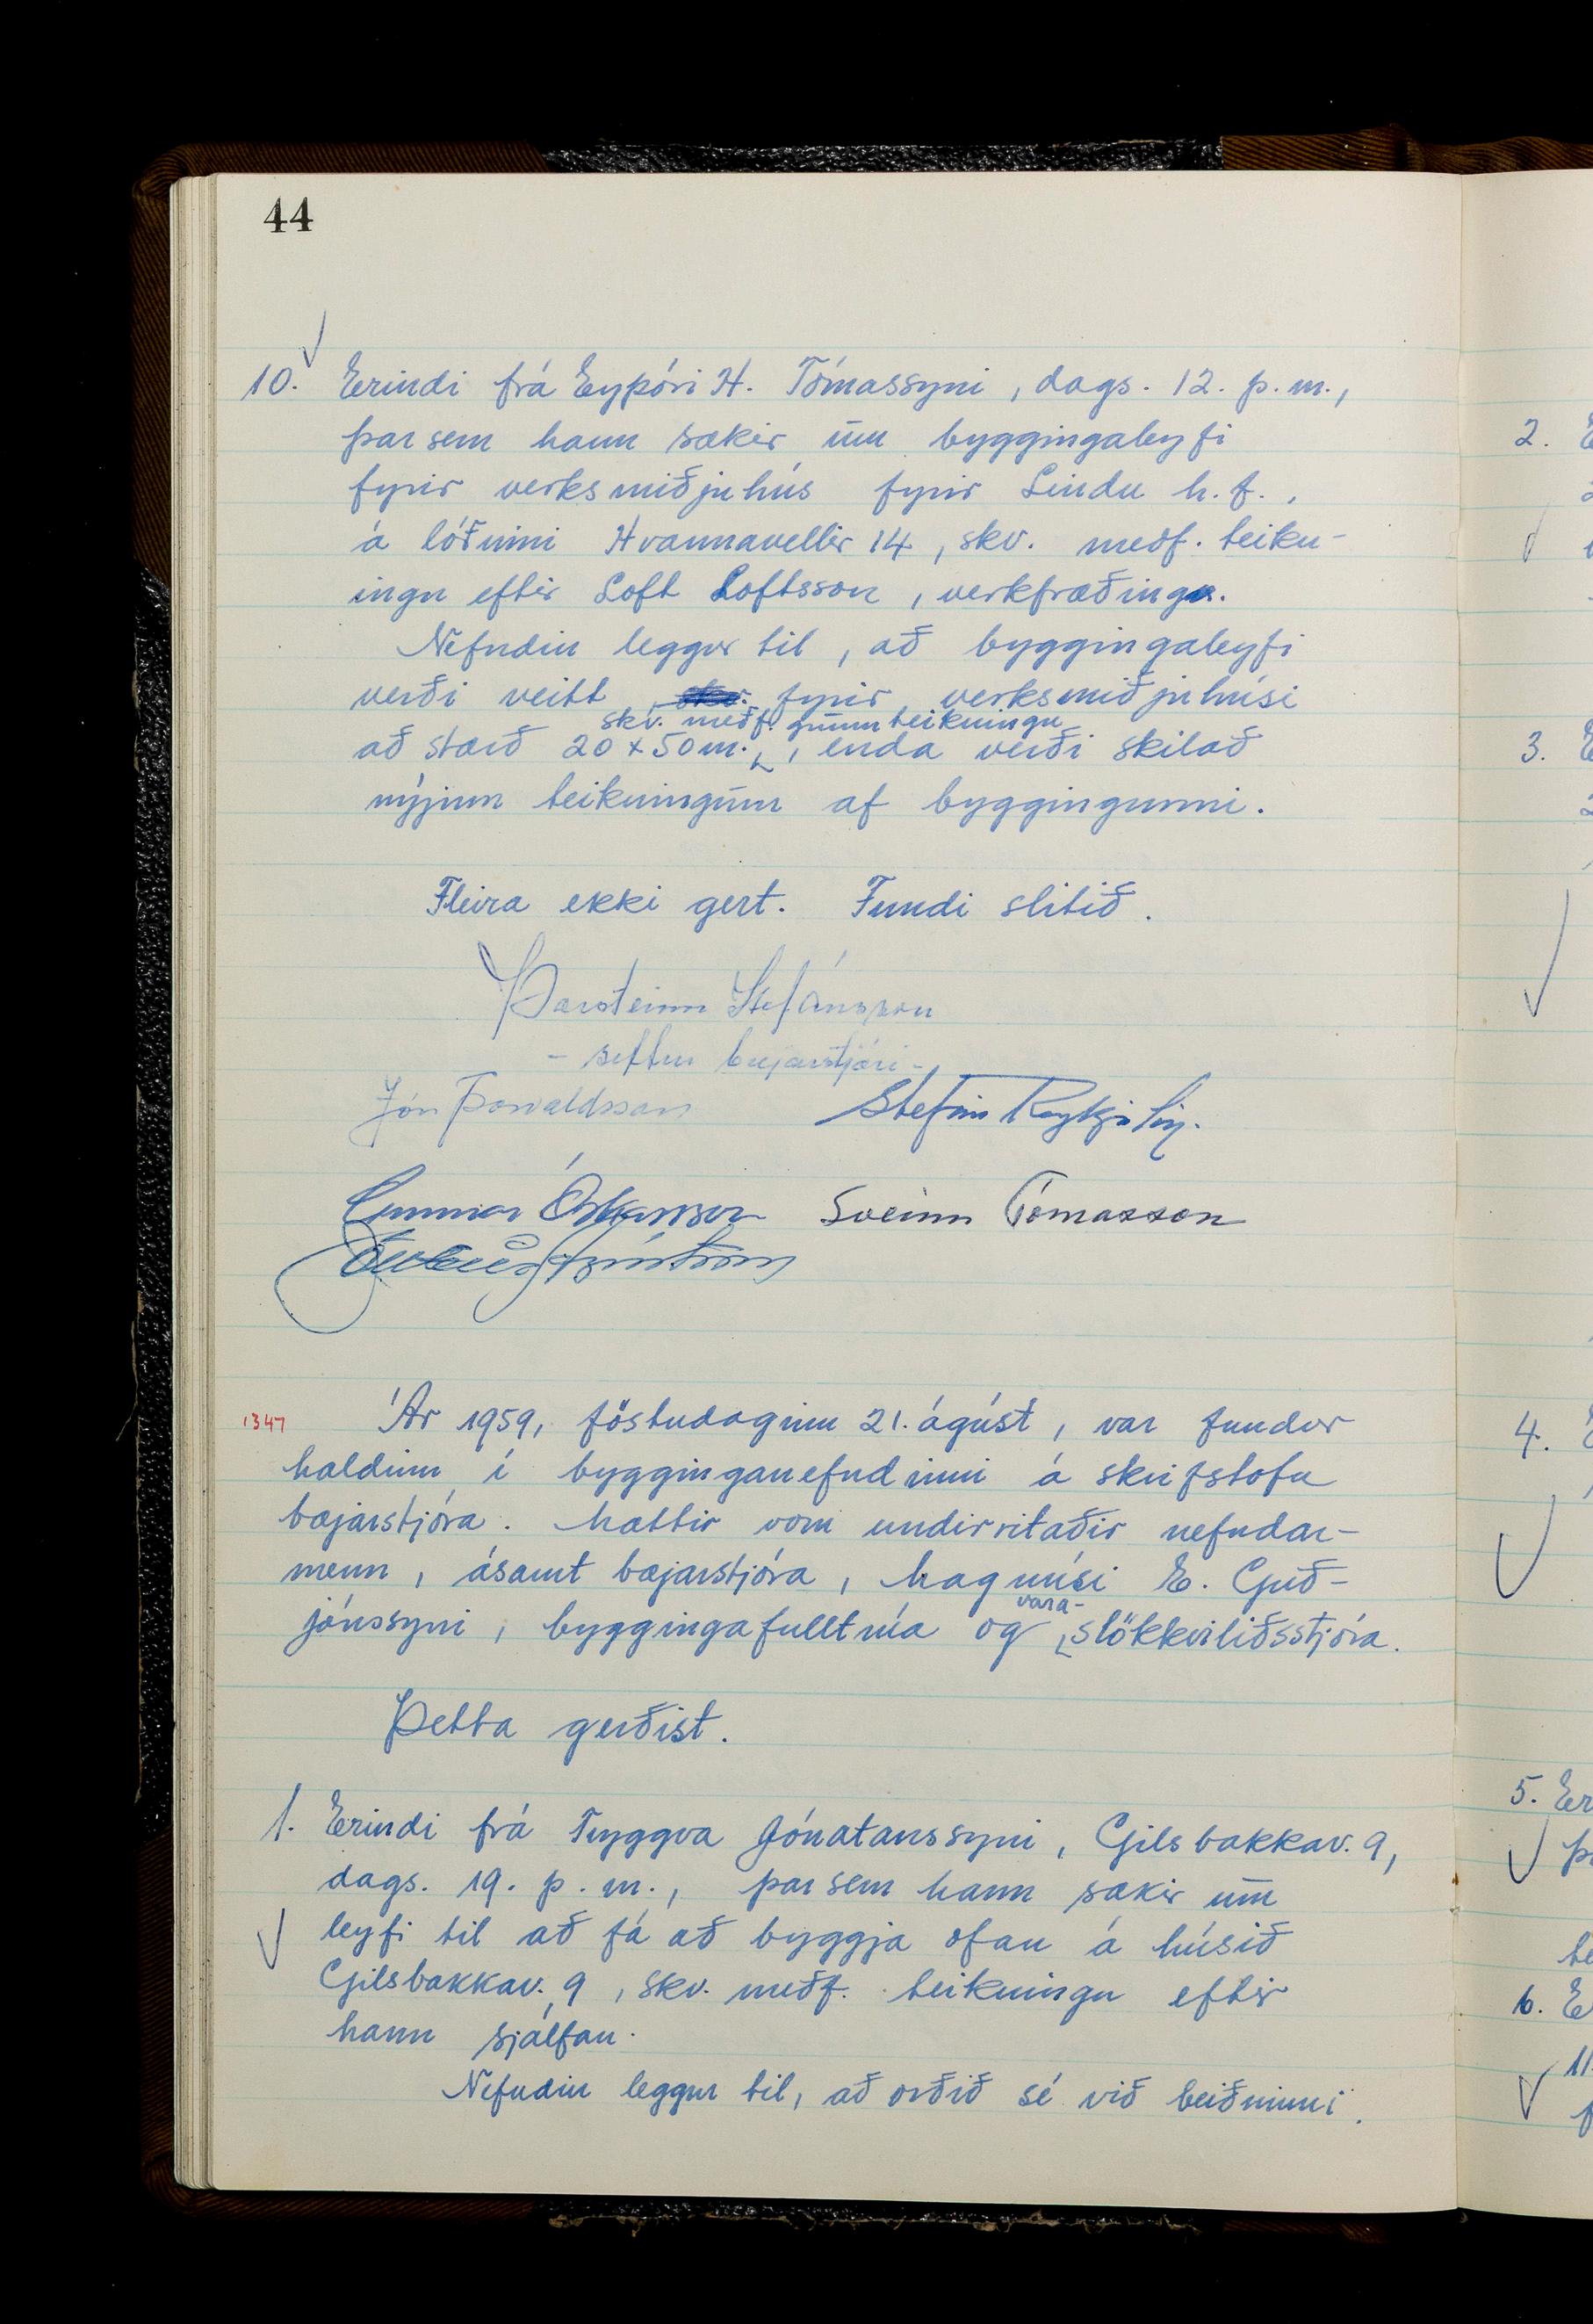 44
10. Erindi frá Eyþóri H. Tómassyni, dags. 12. þ.m.,
þar sem hann sækir um byggingaleyfi
fyrir verksmiðjuhús fyrir Lindu h.f.,
á lóðinni Hvannavellir 14, skv. meðf. teikn-
ingu eftir Loft Loftsson, verkfræðing.
Nefndin leggur til, að byggingaleyfi
verði veitt fyrir verksmiðjuhúsi
skv. meðf. grunnteikningu
að stærð 20 x 50 m., enda verði skilað
nýjum teikningum af byggingunni.
Fleira ekki gert. Fundi slitið.
Þorsteinn Stefánsson
- settur bæjarstjóri -
Jón Þorvaldsson Stefán Reykjalín.
Gunnar Óskarsson Sveinn Tómasson
1347 Ár 1959, föstudaginn 21. ágúst, var fundur
haldinn í bygginganefndinni á skrifstofu
bæjarstjóra. Mættir voru undirritaðir nefndar-
menn, ásamt bæjarstjóra, Magnúsi E. Guð-
vara-
jónssyni, byggingafulltrúa og slökkviliðsstjóra.
Þetta gerðist.
1. Erindi frá Tryggva Jónatanssyni, Gilsbakkav. 9,
dags. 19. þ.m., þar sem hann sækir um
leyfi til að fá að byggja ofan á húsið
Gilsbakkav. 9, skv. meðf. teikningu eftir
hann sjálfan.
Nefndin leggur til, að orðið sé við beiðninni.
2.
3.
4.
5. Er
6. E